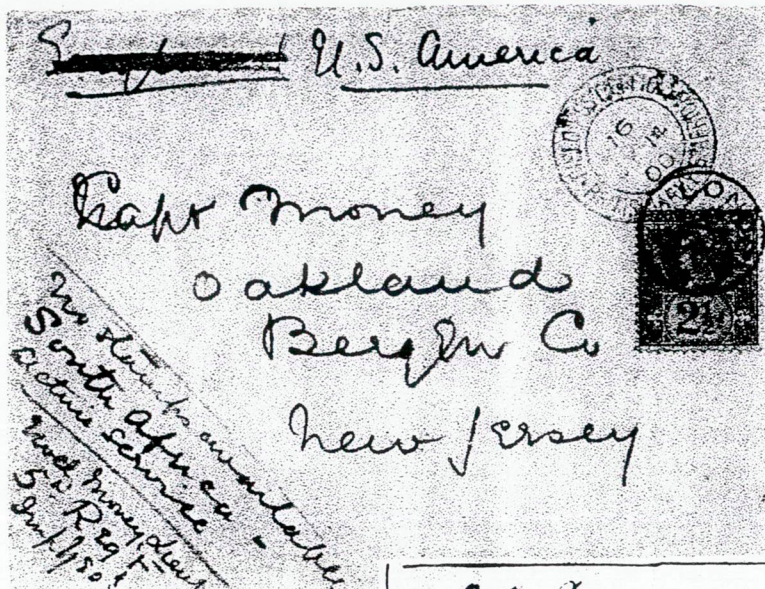 U.S. America
16
00
Capt Money
Oakland
Bergen Co
New Jersey
2½
No stamps available
South Africa -
active service
Money, Lieut
5th Regt